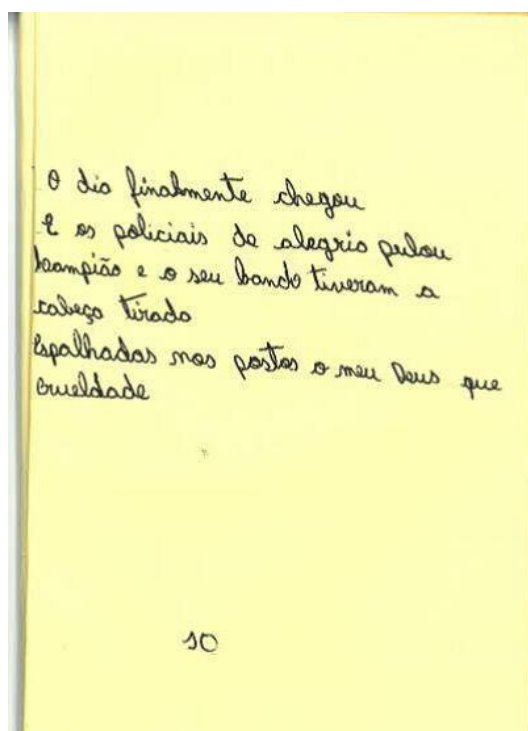 O dia finalmente chegou
E os policiais de alegria pulou
Lampião e o seu bando tiveram a
cabeça tirada
Espalhadas nos postos o meu Deus que
crueldade
10